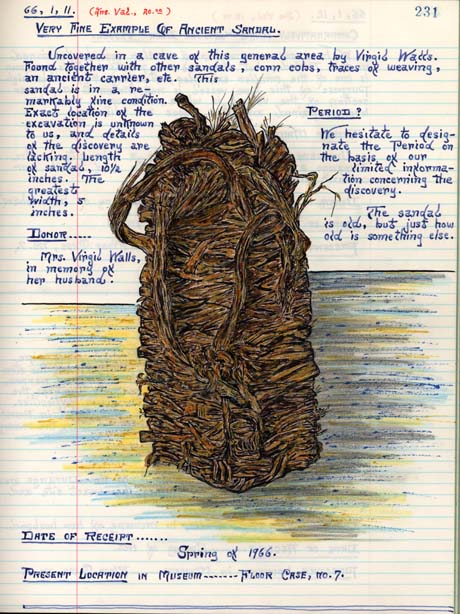 66, 1, 11.
231
VERY FINE EXAMPLE OF ANCIENT SANDAL.
Uncovered in a cave of this general area by Virgil Walls.
Found together with other sandals, corn cobs, traces of weaving,
an ancient carrier, etc. This
sandal is in a re-
markably fine condition.
Exact location of the
excavation is unknown
to us, and details
of the discovery are
lacking. Length
of sandal, 10½
inches. The
greatest
width, 5
inches.
DONOR.....
Mrs. Virgil Walls,
in memory of
her husband.
PERIOD?
We hesitate to desig-
nate the Period on
the basis of our
limited informa-
tion concerning the
discovery.
The sandal
is old, but just how
old is something else.
DATE OF RECEIPT.......
Spring of 1966.
PRESENT LOCATION IN MUSEUM------- FLOOR CASE, NO. 7.